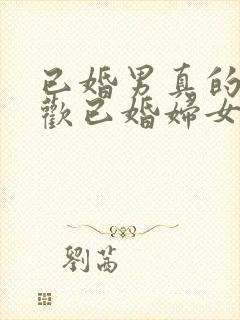 已婚男真的
歡已婚婦女
劉茜